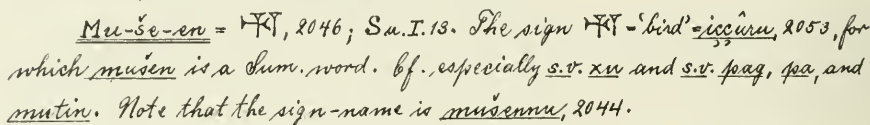 Mu-še-en = 𒄷, 2046; Sa.I.13. The sign 𒄷 - 'bird' = iççûru, 2053, for
which mušen is a Sum. word. Cf. especially s.v. xu and s.v. pag, pa, and
mutin. Note that the sign-name is mušennu, 2044.